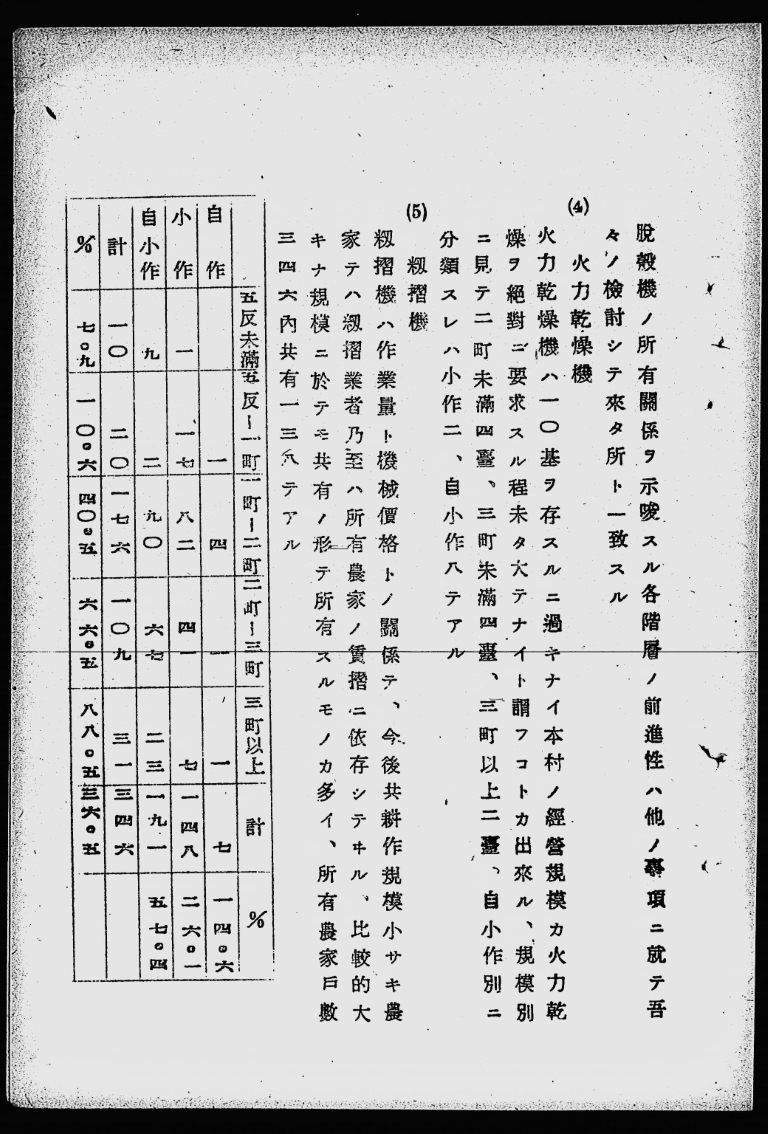 脫穀機ノ所有關係ヲ示唆スル各階層ノ前進性ハ他ノ事項ニ就テ吾
々ノ檢討シテ來タ所ト一致スル
(4) 火力乾燥機
火力乾燥機ハ一〇基ヲ存スルニ過キナイ本村ノ經營規模カ火力乾
燥ヲ絕對ニ要求スル程未タ大テナイト謂フコトカ出來ル、規模別
ニ見テ二町未滿四臺、三町未滿四臺、三町以上二臺、自小作別ニ
分類スレハ小作二、自小作八テアル
(5) 籾摺機
籾摺機ハ作業量ト機械價格トノ關係テ、今後共耕作規模小サキ農
家テハ籾摺業者乃至ハ所有農家ノ賃摺ニ依存シテヰル、比較的大
キナ規模ニ於テモ共有ノ形テ所有スルモノカ多イ、所有農家戶數
三四六內共有一三八テアル
五反未滿 五反ー一町 一町ー二町 二町ー三町 三町以上 計 %
自作 一 四 一 一 七 一四。六
小作 一 一七 八二 四一 七 一四八 二六。一
自小作 九 二 九〇 六七 二三 一九一 五七。四
計 一〇 二〇 一七六 一〇九 三一 三四六
% 七。九 一〇。六 四〇。五 六六。五 八八。五 三六。五